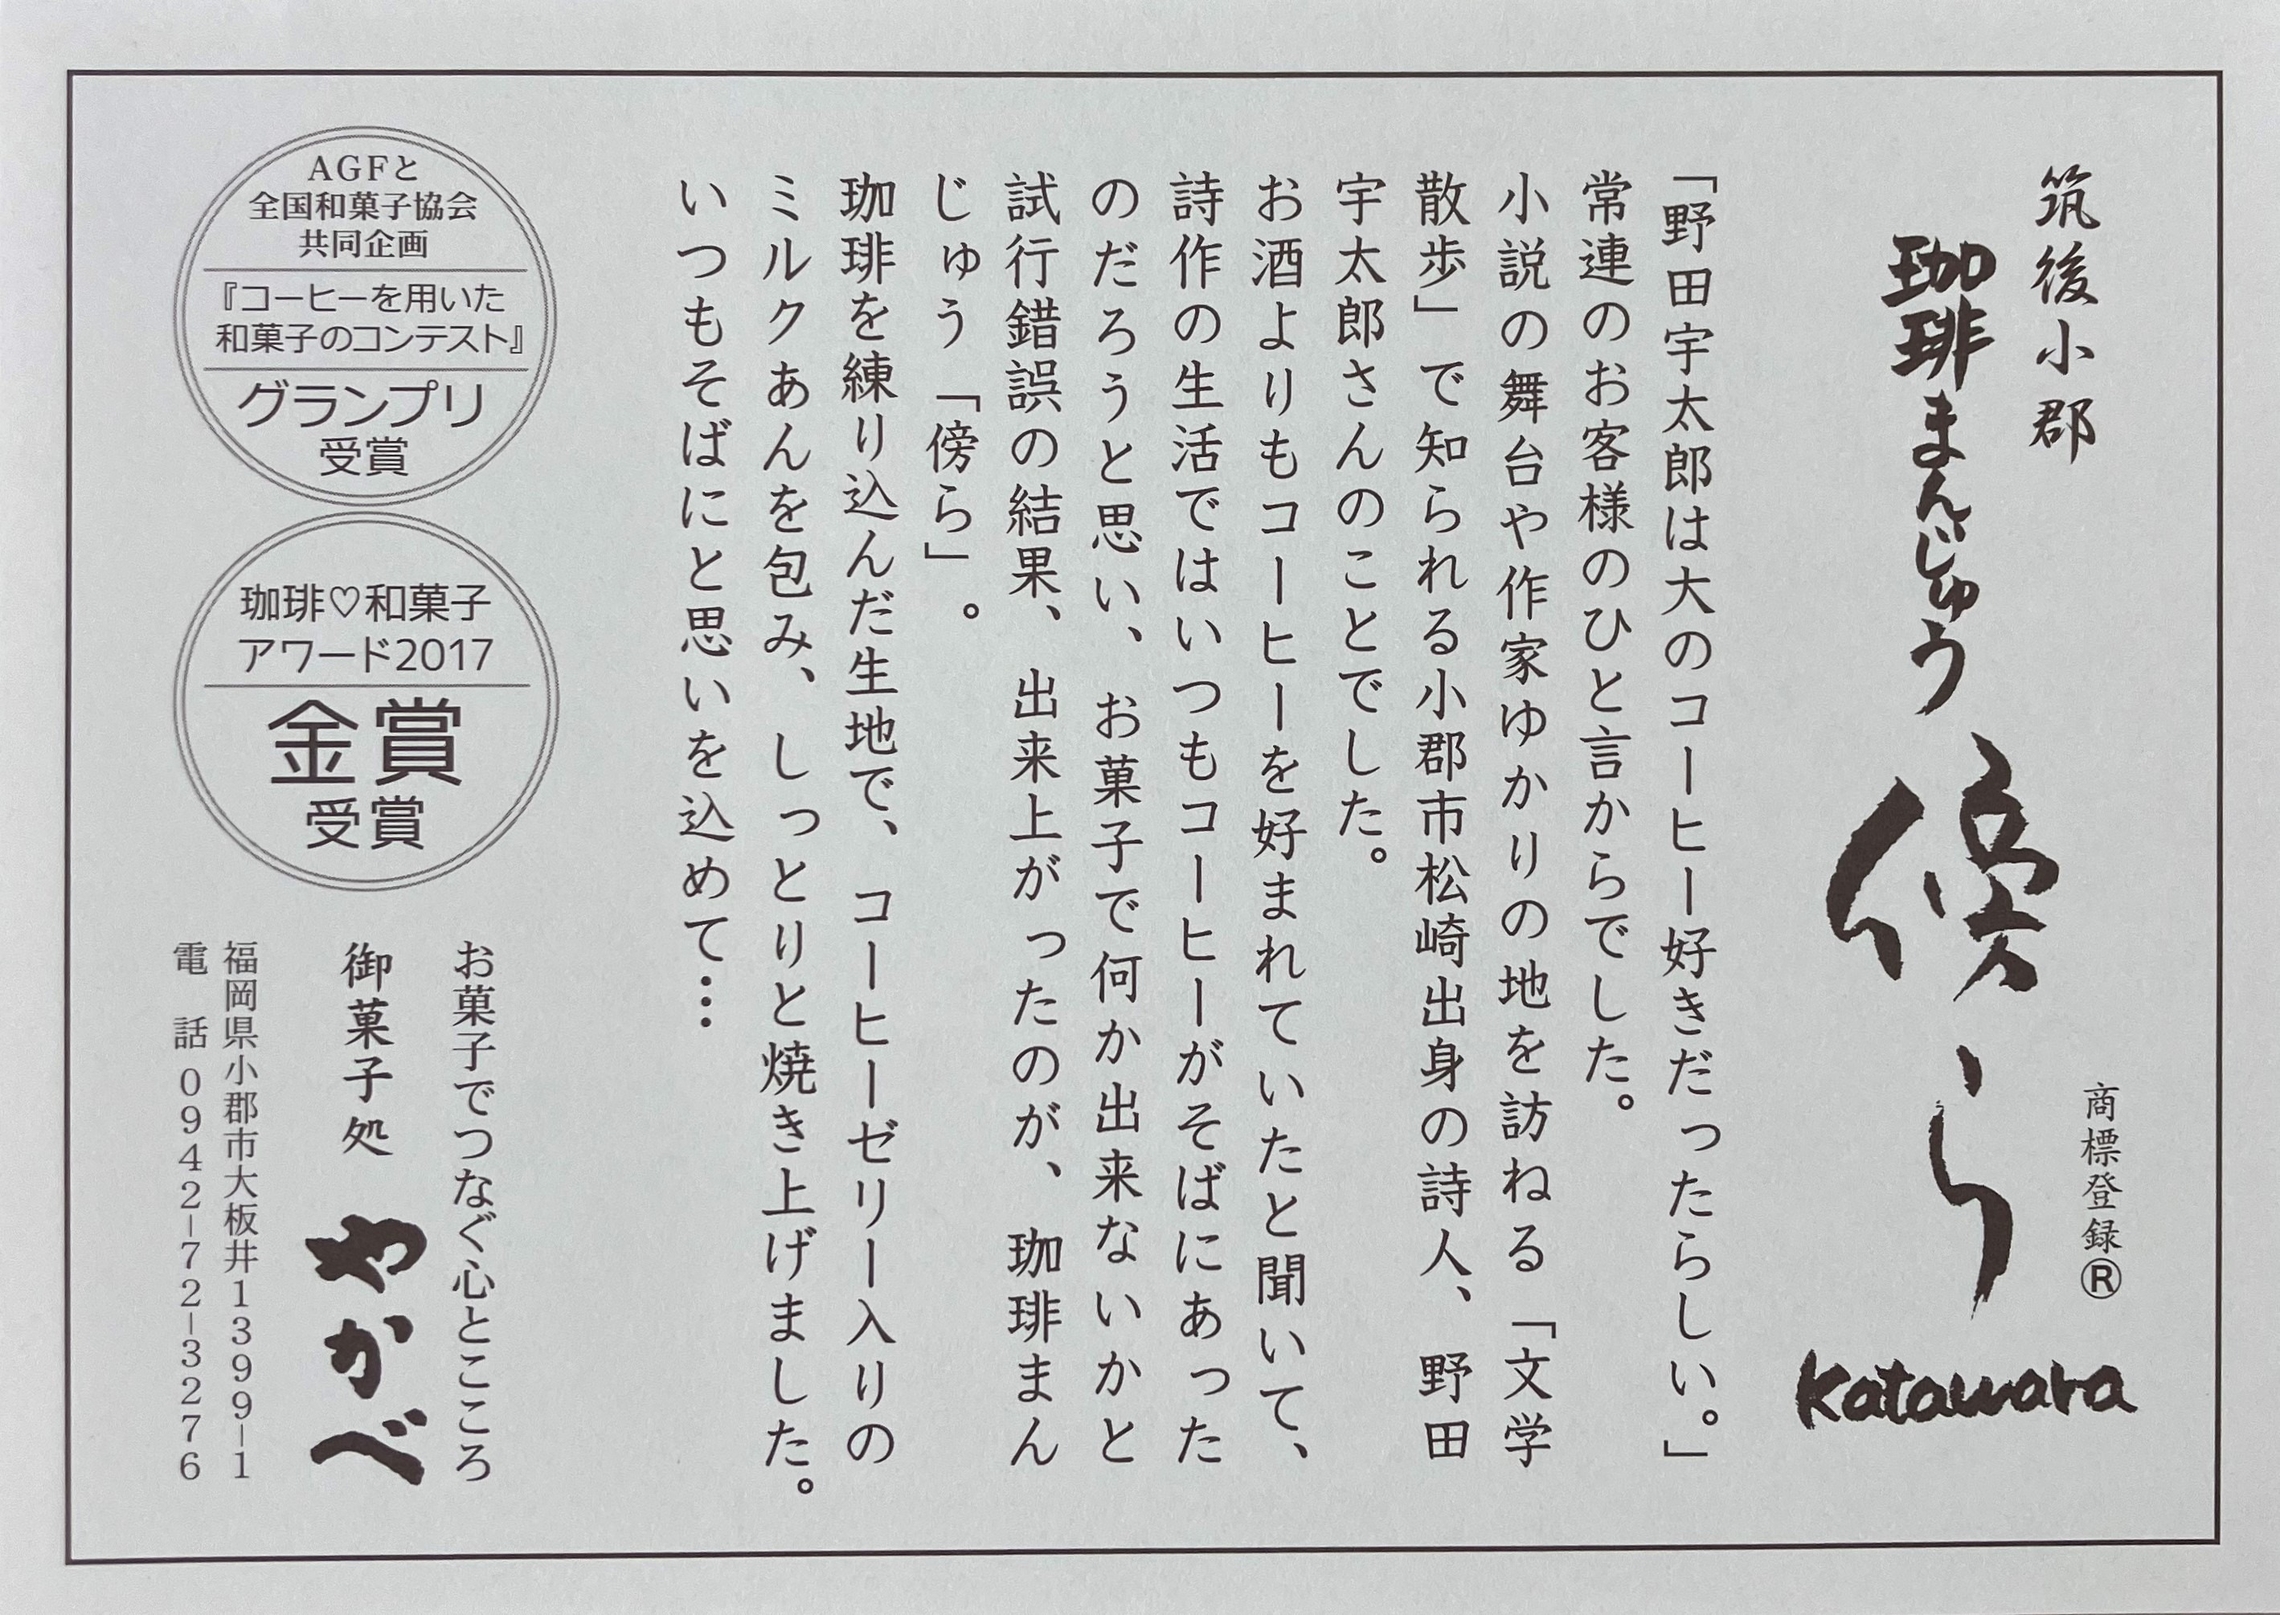 筑後小郡
珈琲まんじゅう
傍ら
katawara
商標登録®
「野田宇太郎は大のコーヒー好きだったらしい。」
常連のお客様のひと言からでした。
小説の舞台や作家ゆかりの地を訪ねる「文学
散歩」で知られる小郡市松崎出身の詩人、野田
宇太郎さんのことでした。
お酒よりもコーヒーを好まれていたと聞いて、
詩作の生活ではいつもコーヒーがそばにあった
のだろうと思い、お菓子で何か出来ないかと
試行錯誤の結果、出来上がったのが、珈琲まん
じゅう「傍ら」。
珈琲を練り込んだ生地で、コーヒーゼリー入りの
ミルクあんを包み、しっとりと焼き上げました。
いつもそばにと思いを込めて…
AGFと
全国和菓子協会
共同企画
『コーヒーを用いた
和菓子のコンテスト』
グランプリ
受賞
珈琲♡和菓子
アワード2017
金賞
受賞
お菓子でつなぐ心とこころ
御菓子処 やかべ
福岡県小郡市大板井1399-1
電話 0942-72-3276